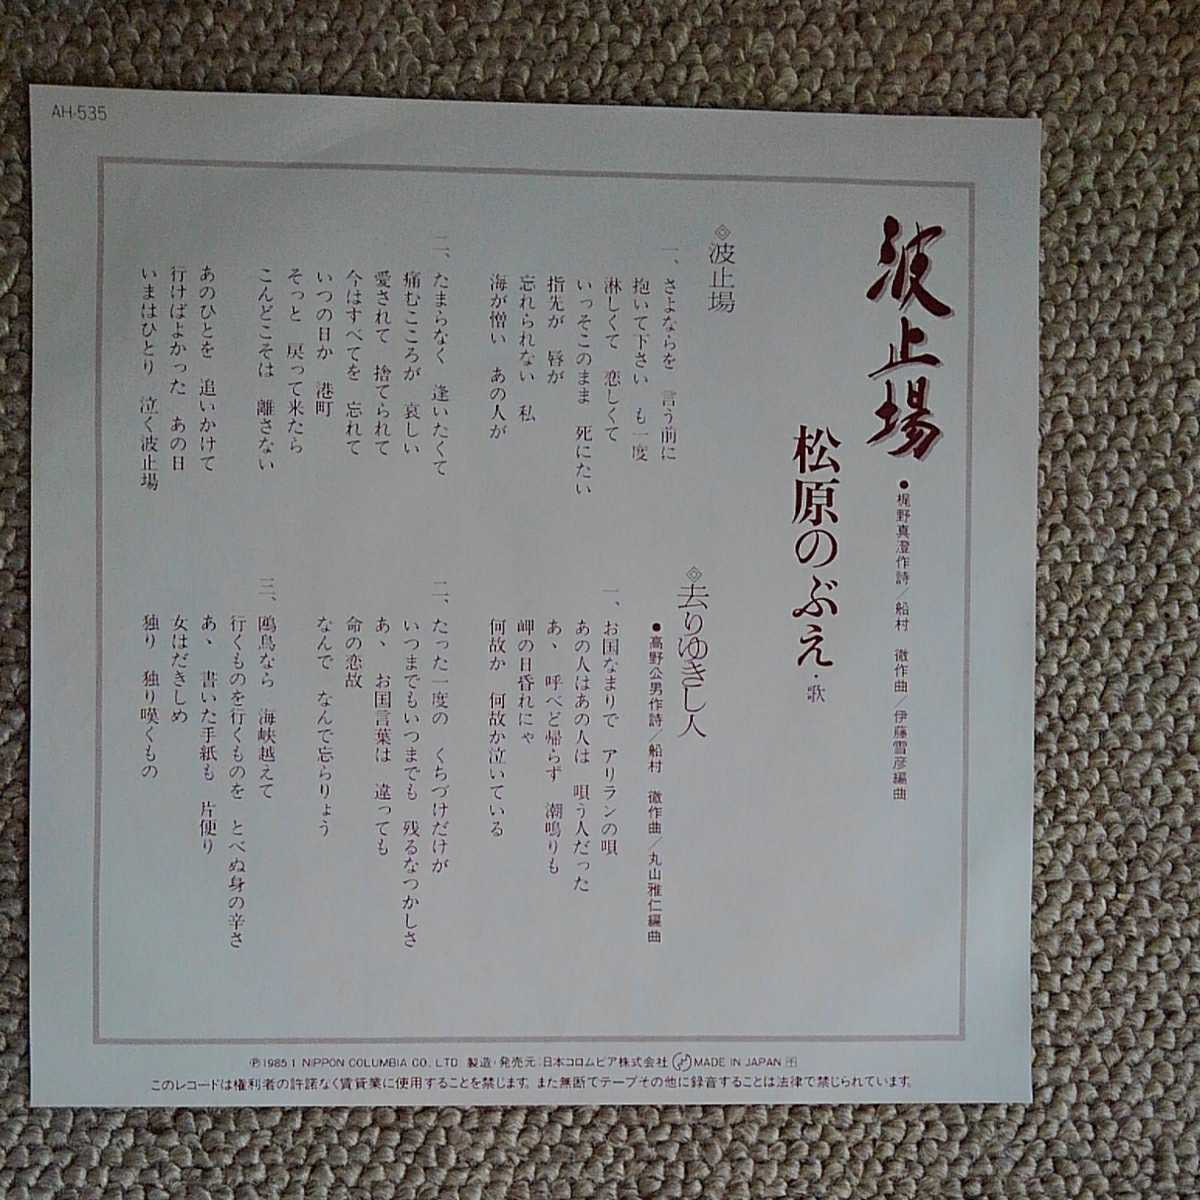 AH-535
波止場
●梶野真澄作詩／船村　徹作曲／伊藤雪彦編曲
松原のぶえ・歌
◎波止場
一、さよならを　言う前に
抱いて下さい　も一度
淋しくて　恋しくて
いっそこのまま　死にたい
指先が　唇が
忘れられない　私
海が憎い　あの人が
二、たまらなく　逢いたくて
痛むこころが　哀しい
愛されて　捨てられて
今はすべてを　忘れて
いつの日か　港町
そっと　戻って来たら
こんどこそは　離さない
あのひとを　追いかけて
行けばよかった　あの日
いまはひとり　泣く波止場
◎去りゆきし人
●高野公男作詩／船村　徹作曲／丸山雅仁編曲
一、お国なまりで　アリランの唄
あの人はあの人は　唄う人だった
あゝ　呼べど帰らず　潮鳴りも
岬の日昏れにゃ
何故か　何故か泣いている
二、たった一度の　くちづけだけが
いつまでもいつまでも　残るなつかしさ
あゝ　お国言葉は　違っても
命の恋故
なんで　なんで忘らりょう
三、鴎鳥なら　海峡越えて
行くものを行くものを　とべぬ身の辛さ
あゝ　書いた手紙も　片便り
女はだきしめ
独り　独り嘆くもの
Ⓟ1985.1 NIPPON COLUMBIA CO., LTD. 製造・発売元:日本コロムビア株式会社 MADE IN JAPAN
このレコードは権利者の許諾なく賃貸業に使用することを禁じます。また無断でテープその他に録音することは法律で禁じられています。